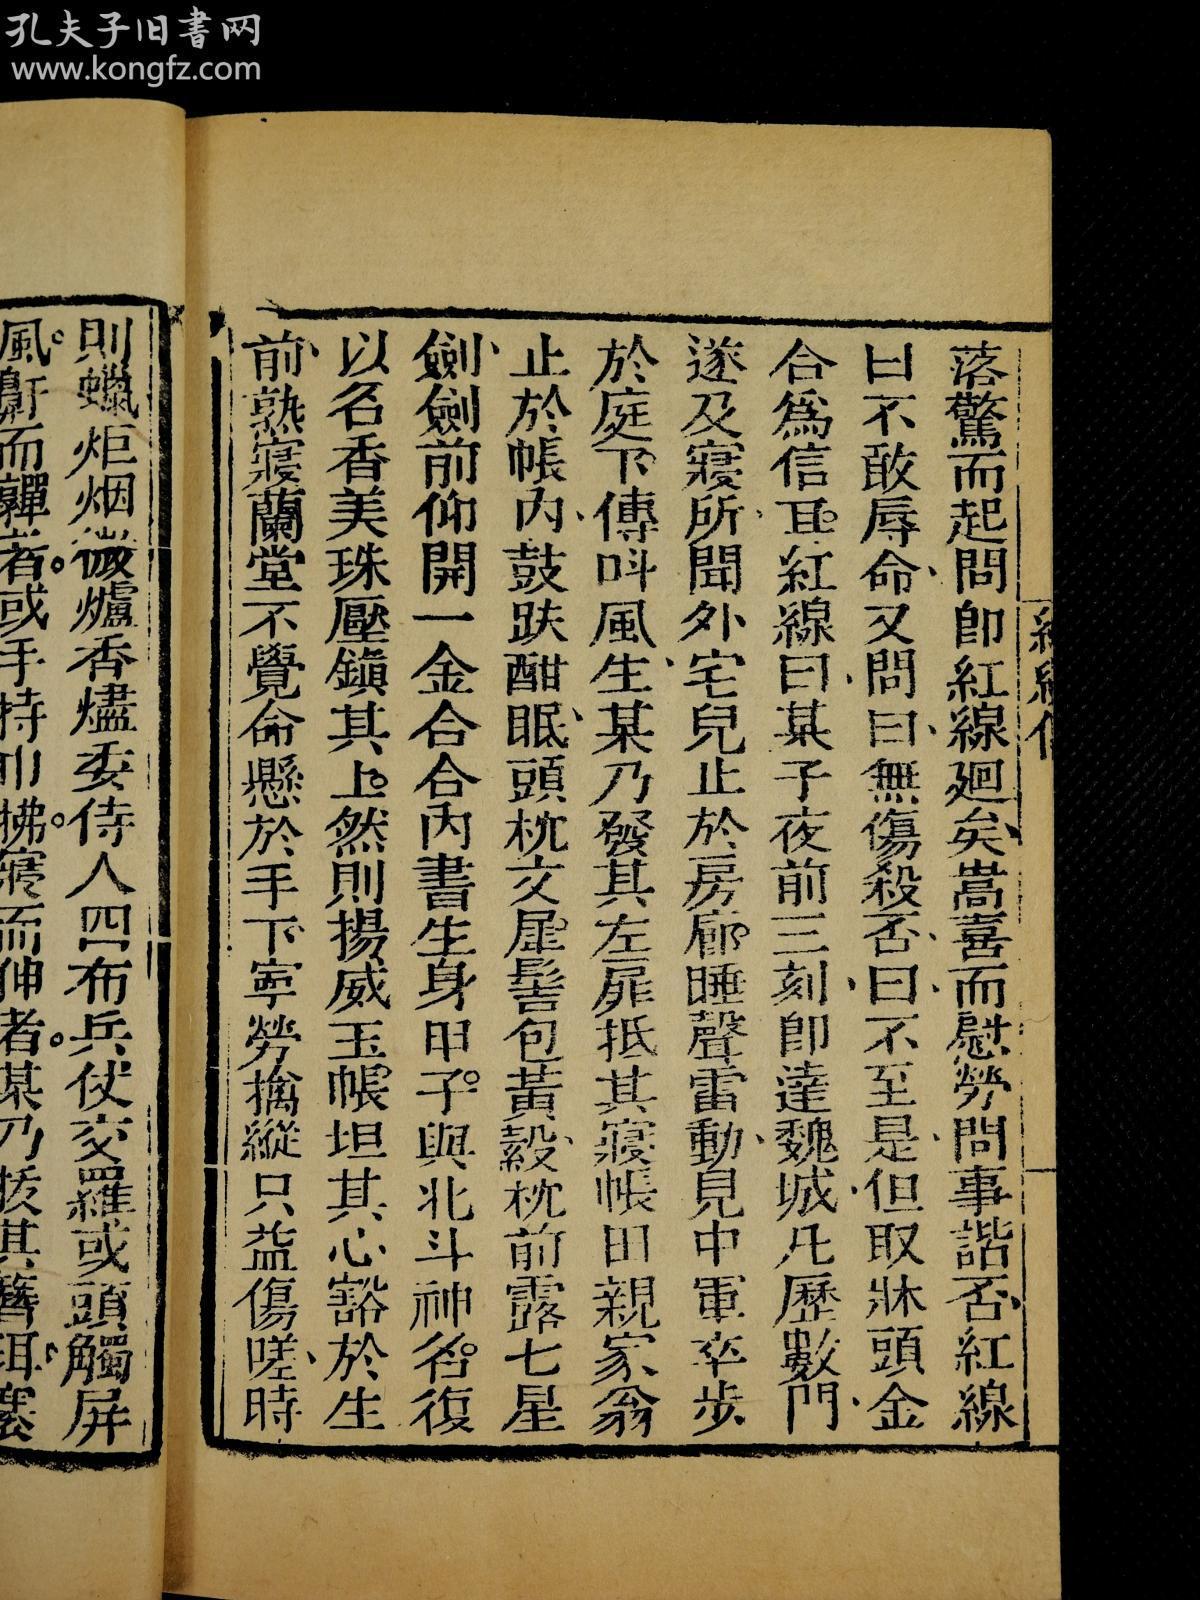 孔夫子旧書网
www.kongfz.com
落驚而起問即紅線廻矣嵩喜而慰勞問事諧否紅線
曰不敢辱命又問曰無傷殺否曰不至是但取牀頭金
合為信耳紅線曰某子夜前三刻即達魏城凡歷數門
遂及寢所聞外宅兒止於房廊睡聲雷動見中軍卒步
於庭下傳呌風生某乃發其左扉抵其寢帳田親家翁
止於帳內鼓趺酣眠頭枕文犀髻包黃縠枕前露七星
劍劍前仰開一金合合內書生身甲子與北斗神名復
以名香美珠壓鎮其上然則揚威玉帳坦其心豁於生
前熟寢蘭堂不覺命懸於手下寧勞擒縱只益傷嗟時
則蠟炬烟微爐香燼委侍人四布兵仗交羅或頭觸屏
風鼾而嚲者或手持巾拂寢而伸者某乃拔其簪珥